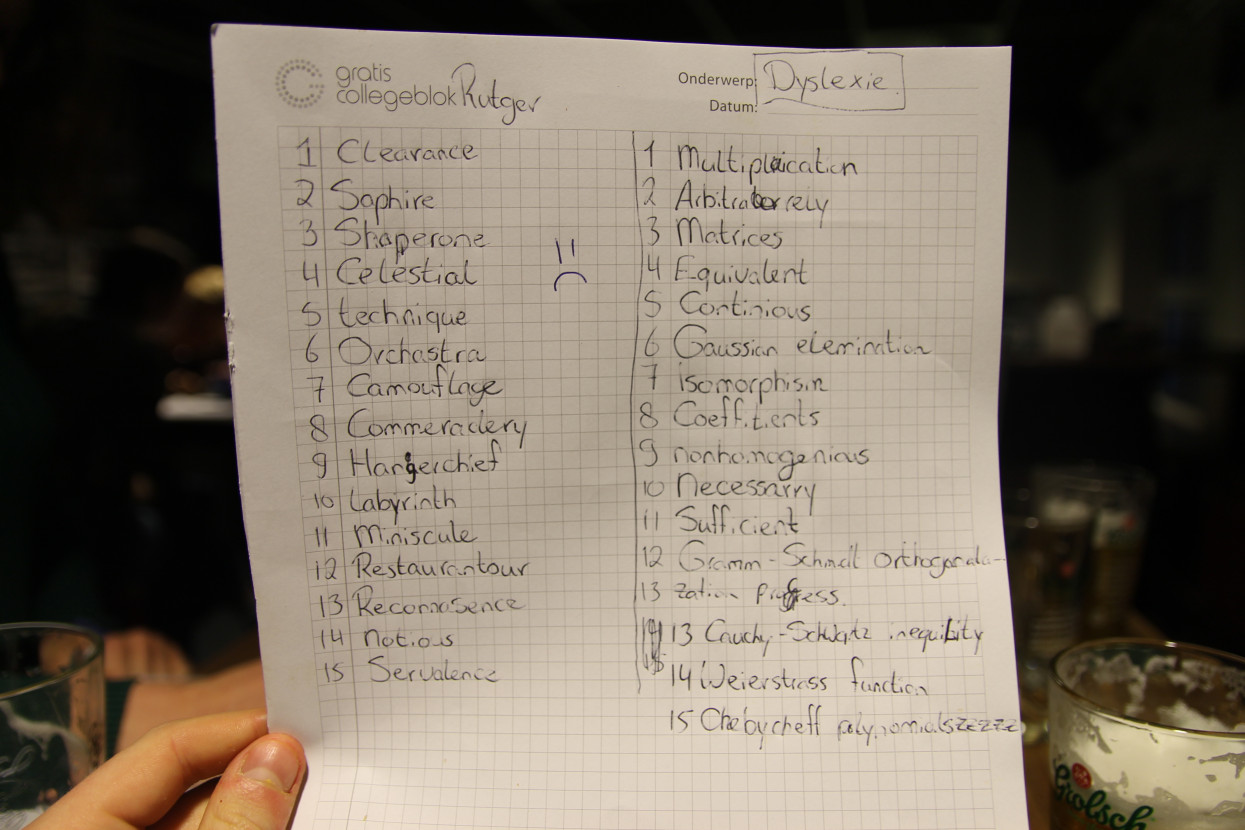 gratis
collegeblok Rutger
Onderwerp: Dyslexie
Datum:
1 Clearance
2 Saphire
3 Shaperone
4 Celestial
5 technique
6 Orchastra
7 Camouflage
8 Commeradery
9 Hangerchief
10 Labyrinth
11 Miniscule
12 Restaurantour
13 Reconnosence
14 notious
15 Servalence
1 Multiplication
2 Arbitrarrely
3 Matrices
4 Equivalent
5 Continious
6 Gaussian elemination
7 isomorphism
8 Coeffitients
9 nonhomogenious
10 Necessarry
11 Sufficient
12 Gramm-Schmidt Orthogonala-
13 zation process.
14 13 Cauchy-Schwartz inequility
15
14 Weierstrass function
15 Chebycheff polynomialszzzzz
Grolsch